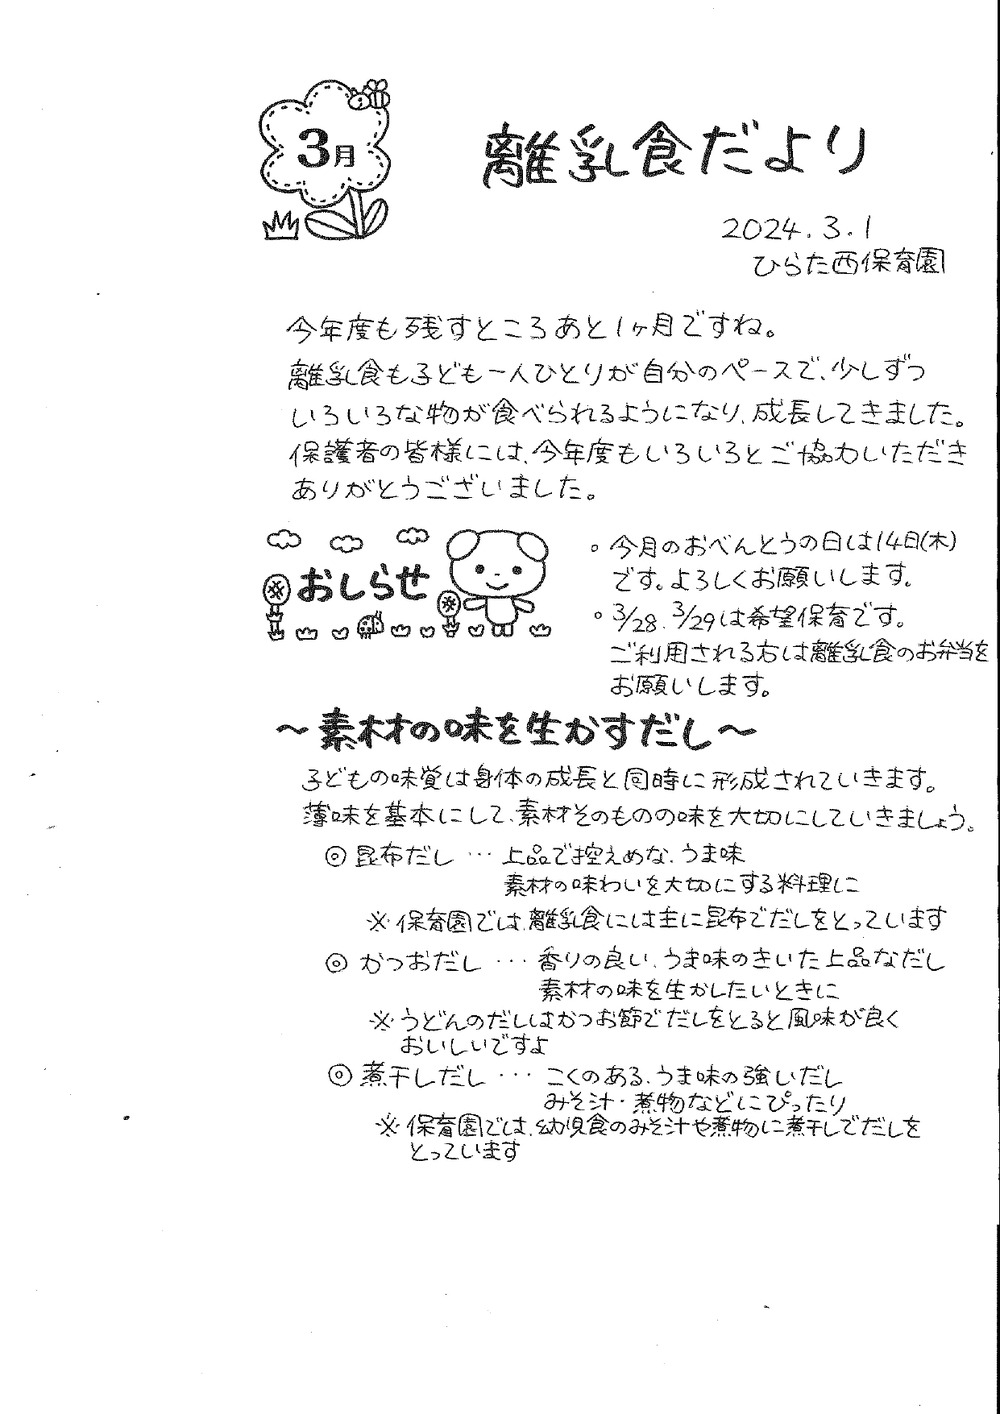 3月
離乳食だより
2024.3.1
ひらた西保育園
今年度も残すところあと1ヶ月ですね。
離乳食も子ども一人ひとりが自分のペースで、少しずつ
いろいろな物が食べられるようになり、成長してきました。
保護者の皆様には、今年度もいろいろとご協力いただき
ありがとうございました。
おしらせ
。今月のおべんとうの日は14日(木)
です。よろしくお願いします。
。3/28、3/29は希望保育です。
ご利用される方は離乳食のお弁当を
お願いします。
～素材の味を生かすだし～
子どもの味覚は身体の成長と同時に形成されていきます。
薄味を基本にして、素材そのものの味を大切にしていきましょう。
◎昆布だし … 上品で控えめな、うま味
素材の味わいを大切にする料理に
※保育園では、離乳食には主に昆布でだしをとっています
◎かつおだし … 香りの良い、うま味のきいた上品なだし
素材の味を生かしたいときに
※うどんのだしはかつお節でだしをとると風味が良く
おいしいですよ
◎煮干しだし … こくのある、うま味の強いだし
みそ汁・煮物などにぴったり
※保育園では、幼児食のみそ汁や煮物に煮干しでだしを
とっています